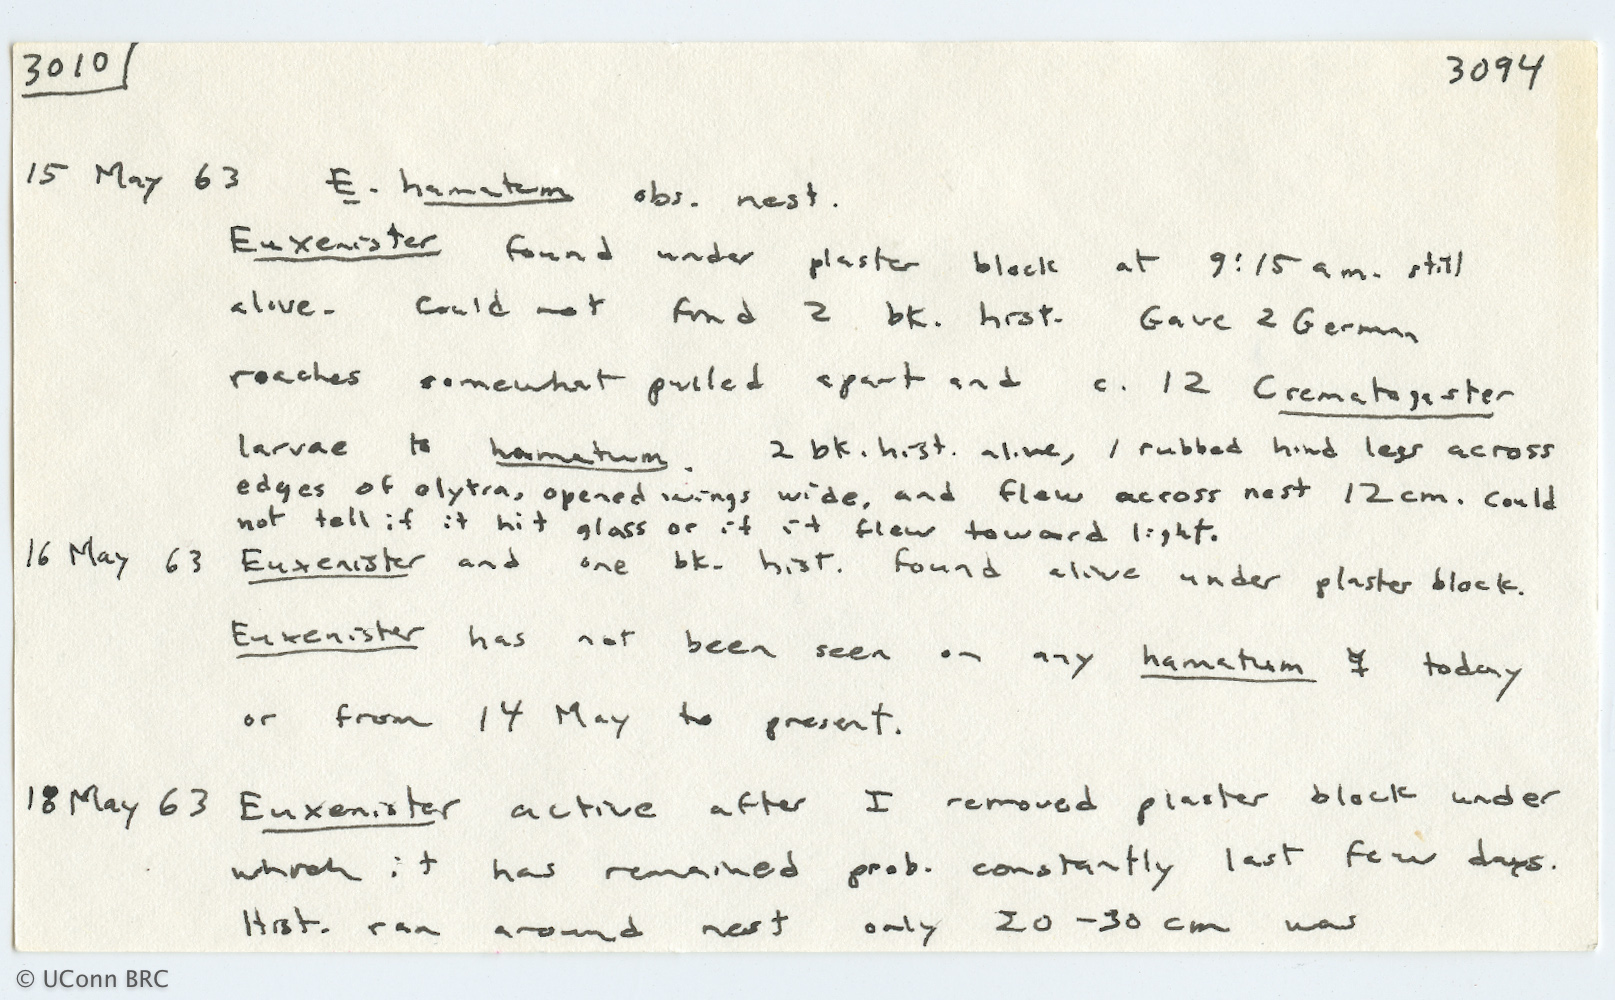 3010 3094
15 May 63 E. hamatum obs. nest.
Euxenister found under plaster block at 9:15 am. still
alive. Could not find 2 bk. hist. Gave 2 German
roaches somewhat pulled apart and c. 12 Crematogaster
larvae to hamatum. 2 bk. hist. alive, 1 rubbed hind legs across
edges of elytra, opened wings wide, and flew across nest 12 cm. Could
not tell if it hit glass or if it flew toward light.
16 May 63 Euxenister and one bk. hist. found alive under plaster block.
Euxenister has not been seen on any hamatum ☿ today
or from 14 May to present.
18 May 63 Euxenister active after I removed plaster block under
which it has remained prob. constantly last few days.
Hist. ran around nest only 20-30 cm was
© UConn BRC